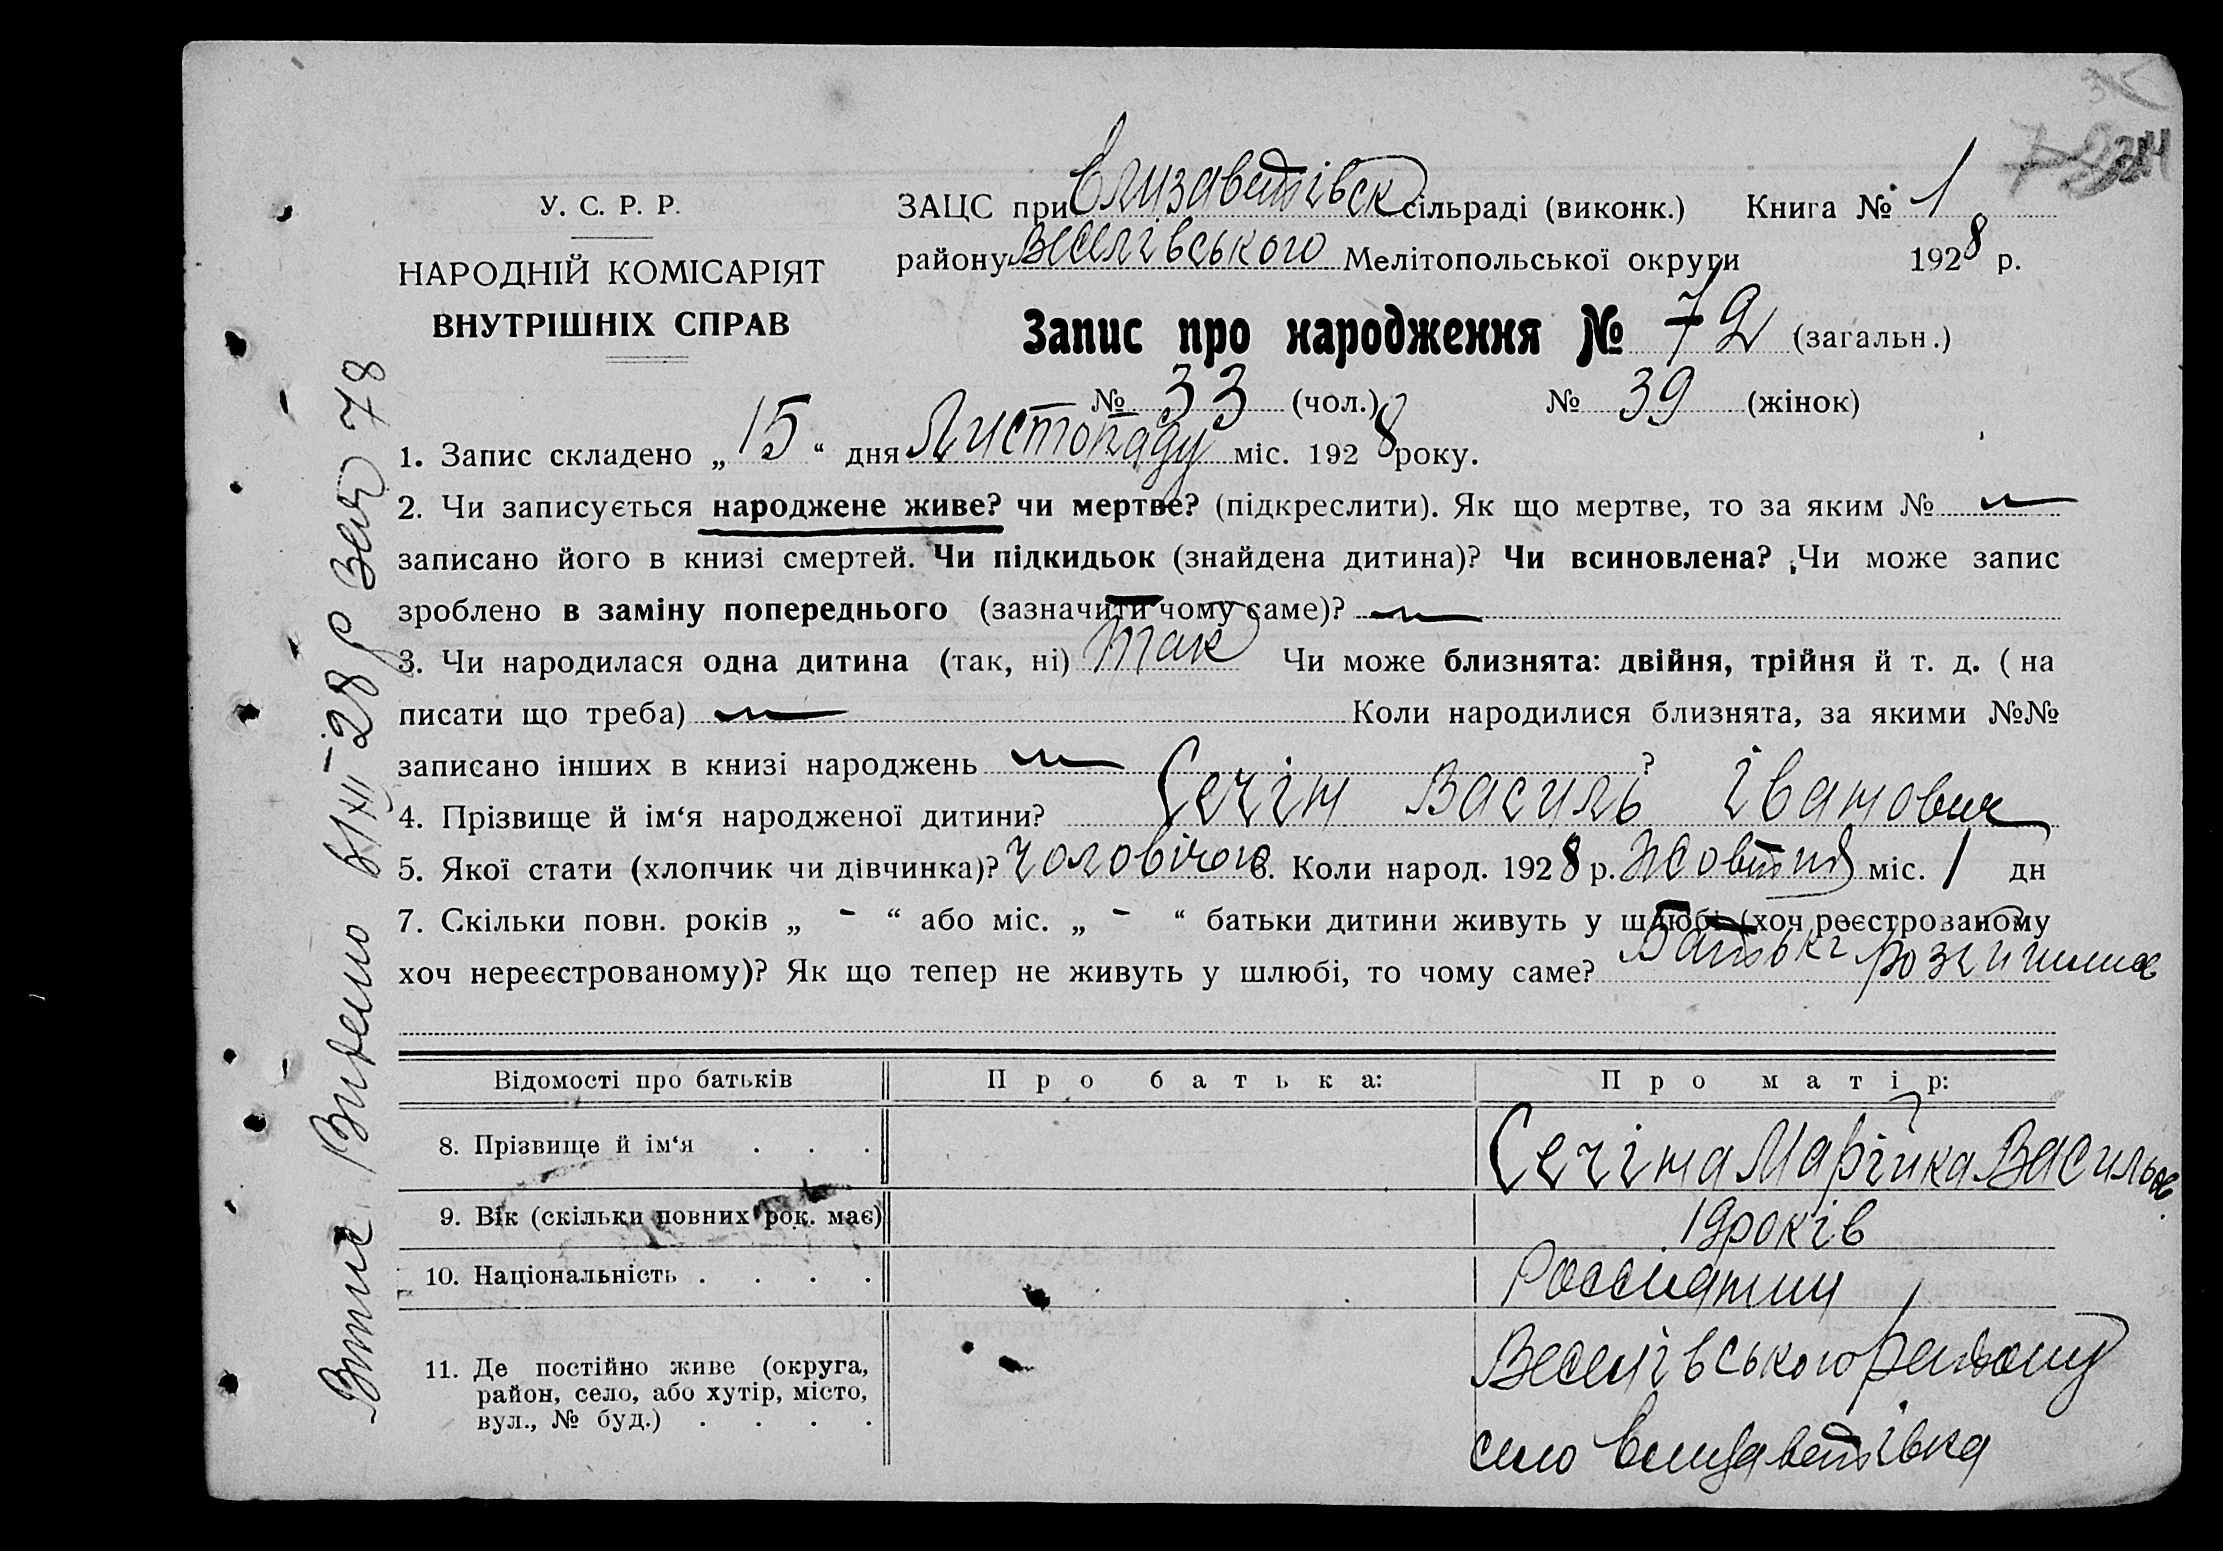 У. С. Р. Р.
НАРОДНІЙ КОМІСАРІЯТ
ВНУТРІШНІХ СПРАВ
ЗАЦС при Єлизаветівск сільраді (виконк.) Книга № 1
району Веселівського Мелітопольської округи 1928 р.
Запис про народження № 72 (загальн.)
№ 33 (чол.) № 39 (жінок)
1. Запис складено „ 15 “ дня Листопаду міс. 1928 року.
2. Чи записується народжене живе? чи мертве? (підкреслити). Як що мертве, то за яким №
записано його в книзі смертей. Чи підкидьок (знайдена дитина)? Чи всиновлена? Чи може запис
зроблено в заміну попереднього (зазначити чому саме)?
3. Чи народилася одна дитина (так, ні) так Чи може близнята: двійня, трійня й т. д. (на
писати що треба) Коли народилися близнята, за якими №№
записано інших в книзі народжень ?
4. Прізвище й ім‘я народженої дитини? Сечін Василь Іванович
5. Якої стати (хлопчик чи дівчинка)? чоловічою 6. Коли народ. 1928 р. Жовтня міс. 1 дн
7. Скільки повн. років „ - “ або міс. „ - “ батьки дитини живуть у шлюбі (хоч реєстрованому
хоч нереєстрованому)? Як що тепер не живуть у шлюбі, то чому саме? Батькі розійшлися
Відомості про батьків Про батька: Про матір:
8. Прізвище й ім‘я . . . Сечіна Марійка Василье
9. Вік (скільки повних рок. має) 19 років
10. Національність . . . . Россиянин
11. Де постійно живе (округа,
район, село, або хутір, місто,
вул., № буд.) . . . .
Веселівського району
село Єлизаветівка